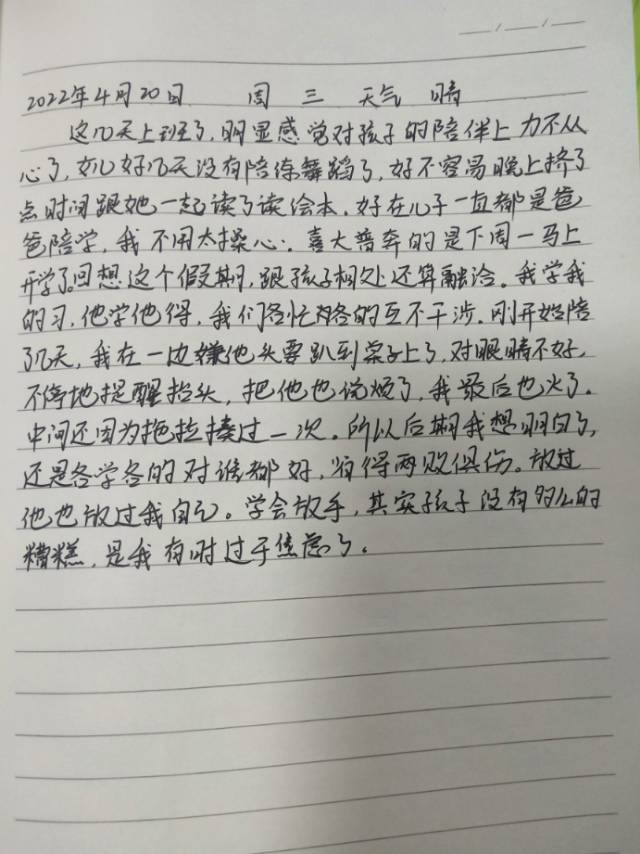 2022年4月20日 周三 天气 晴
这几天上班了，明显感觉对孩子的陪伴上力不从
心了，女儿好几天没有陪练舞蹈了，好不容易晚上挤了
点时间跟她一起读了读绘本。好在儿子一直都是爸
爸陪学，我不用太操心。喜大普奔的是下周一马上
开学了。回想这个假期，跟孩子相处还算融洽。我学我
的习，他学他得，我们各忙各的互不干涉。刚开始陪
了几天，我在一边嫌他头要趴到桌子上了，对眼睛不好，
不停地提醒抬头，把他也说烦了，我最后也火了。
中间还因为拖拉揍过一次。所以后期我想明白了，
还是各学各的对谁都好，省得两败俱伤。放过
他也放过我自己。学会放手，其实孩子没有多么的
糟糕，是我有时过于焦虑了。